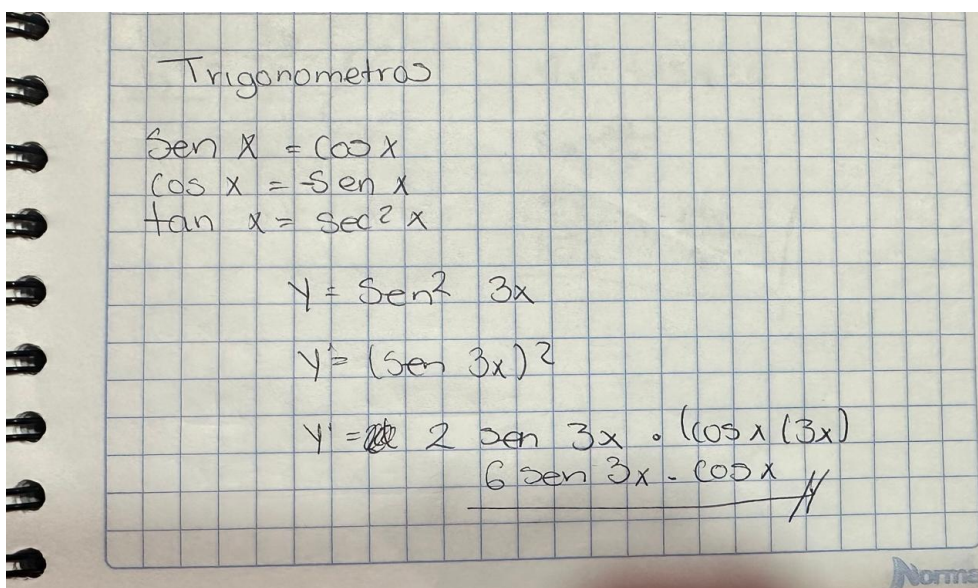 Trigonometros
Sen x = cos x
cos x = -sen x
tan x = sec² x
y = sen² 3x
y' = (sen 3x)²
y' = 2 sen 3x . (cos x (3x)
6 sen 3x - cos x
Norma